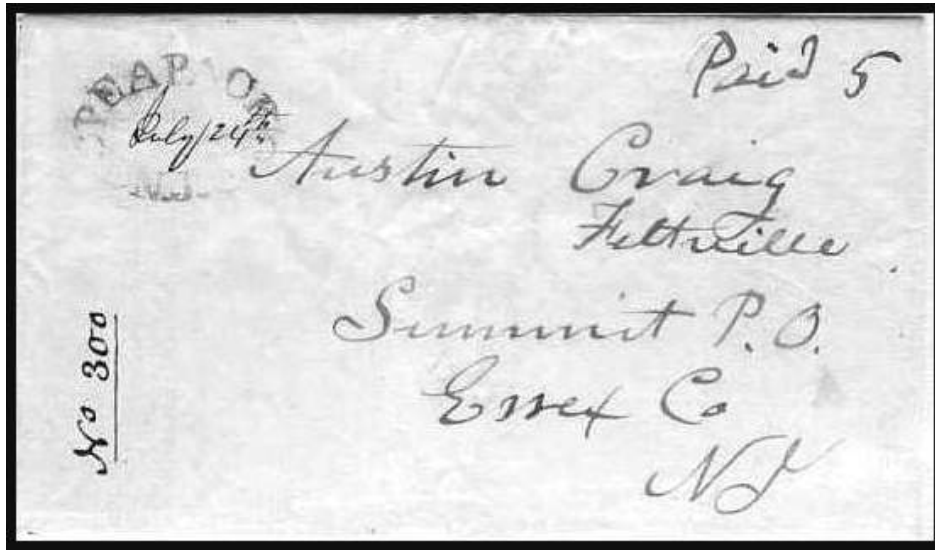 Paid 5
July 24th
Austin Craig
Feltville
Summit P.O.
Essex Co
NJ
No 300